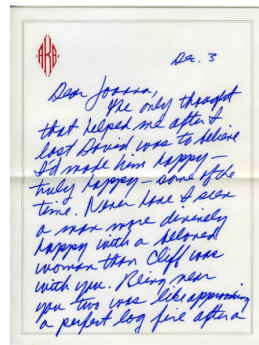 AKB
Dec. 3
Dear Joanna,
The only thought
that helped me after I
lost David was to believe
I'd made him happy –
truly happy – some of the
time. Never have I seen
a man more serenely
happy with a beloved
woman than Cliff was
with you. Being near
you two was like approaching
a perfect log fire after a